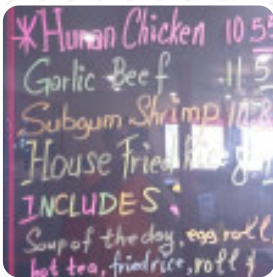 *Hunan Chicken 10.55
Garlic Beef 11.5
Subgum Shrimp
House Fried
INCLUDES:
Soup of the day, egg roll
hot tea, fried rice, roll